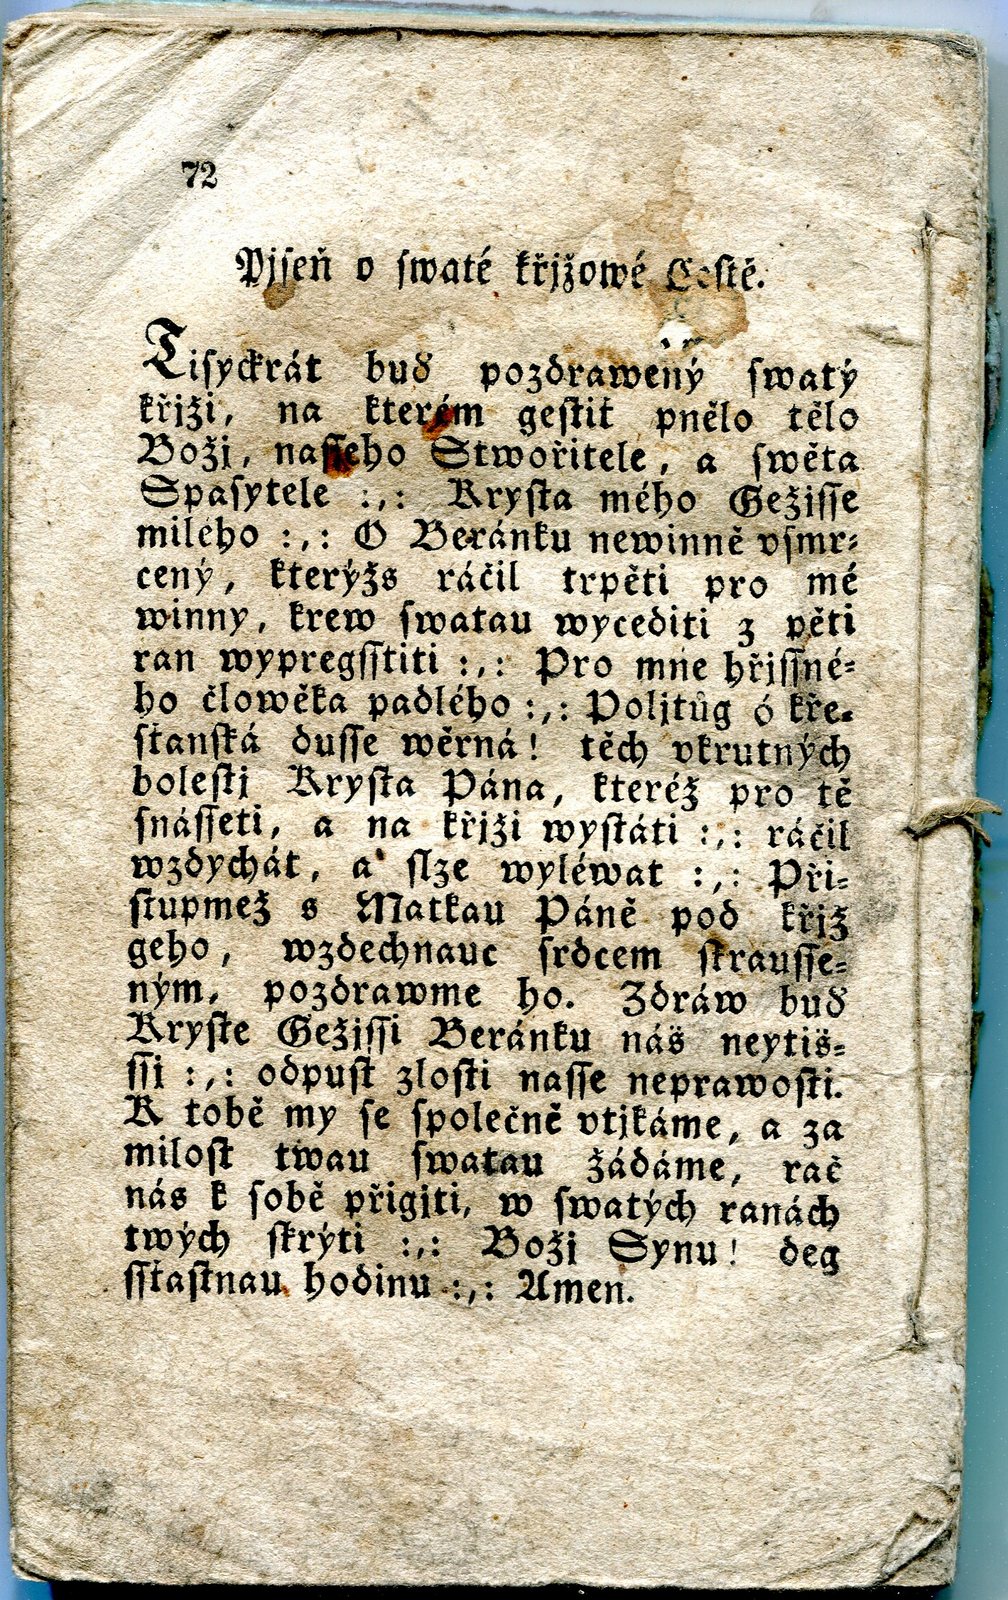 72
Pjseň o swaté křjžowé Cestě.
Tisyckrát buď pozdrawený swatý
křjži, na kterém gestiť pnělo tělo
Božj, nasseho Stwořitele, a swěta
Spasytele :,: Krysta mého Gežisse
milého :,: O Beránku newinně vsmr⸗
cený, kterýžs ráčil trpěti pro mé
winny, krew swatau wycediti z pěti
ran wypregsstiti :,: Pro mne hřjssné⸗
ho člowěka padlého :,: Poljtůg ó kře⸗
sťanská dusse wěrná! těch vkrutných
bolestj Krysta Pána, kteréž pro tě
snásseti, a na křjži wystáti :,: ráčil
wzdychát, a slze wyléwat :,: Při⸗
stupmež s Matkau Páně pod křjž
geho, wzdechnauc srdcem skrausse⸗
ným, pozdrawme ho. Zdráw buď
Kryste Gežissi Beránku náš neytiš⸗
ssi :,: odpusť zlosti nasse neprawosti.
K tobě my se společně vtjkáme, a za
milost twau swatau žádáme, rač
nás k sobě přigjti, w swatých ranách
twých skrýti :,: Božj Synu! deg
ssťastnau hodinu :,: Amen.